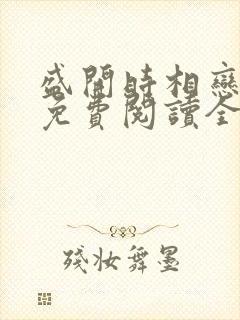 盛開時相戀
免費閱讀全
殘妝舞墨